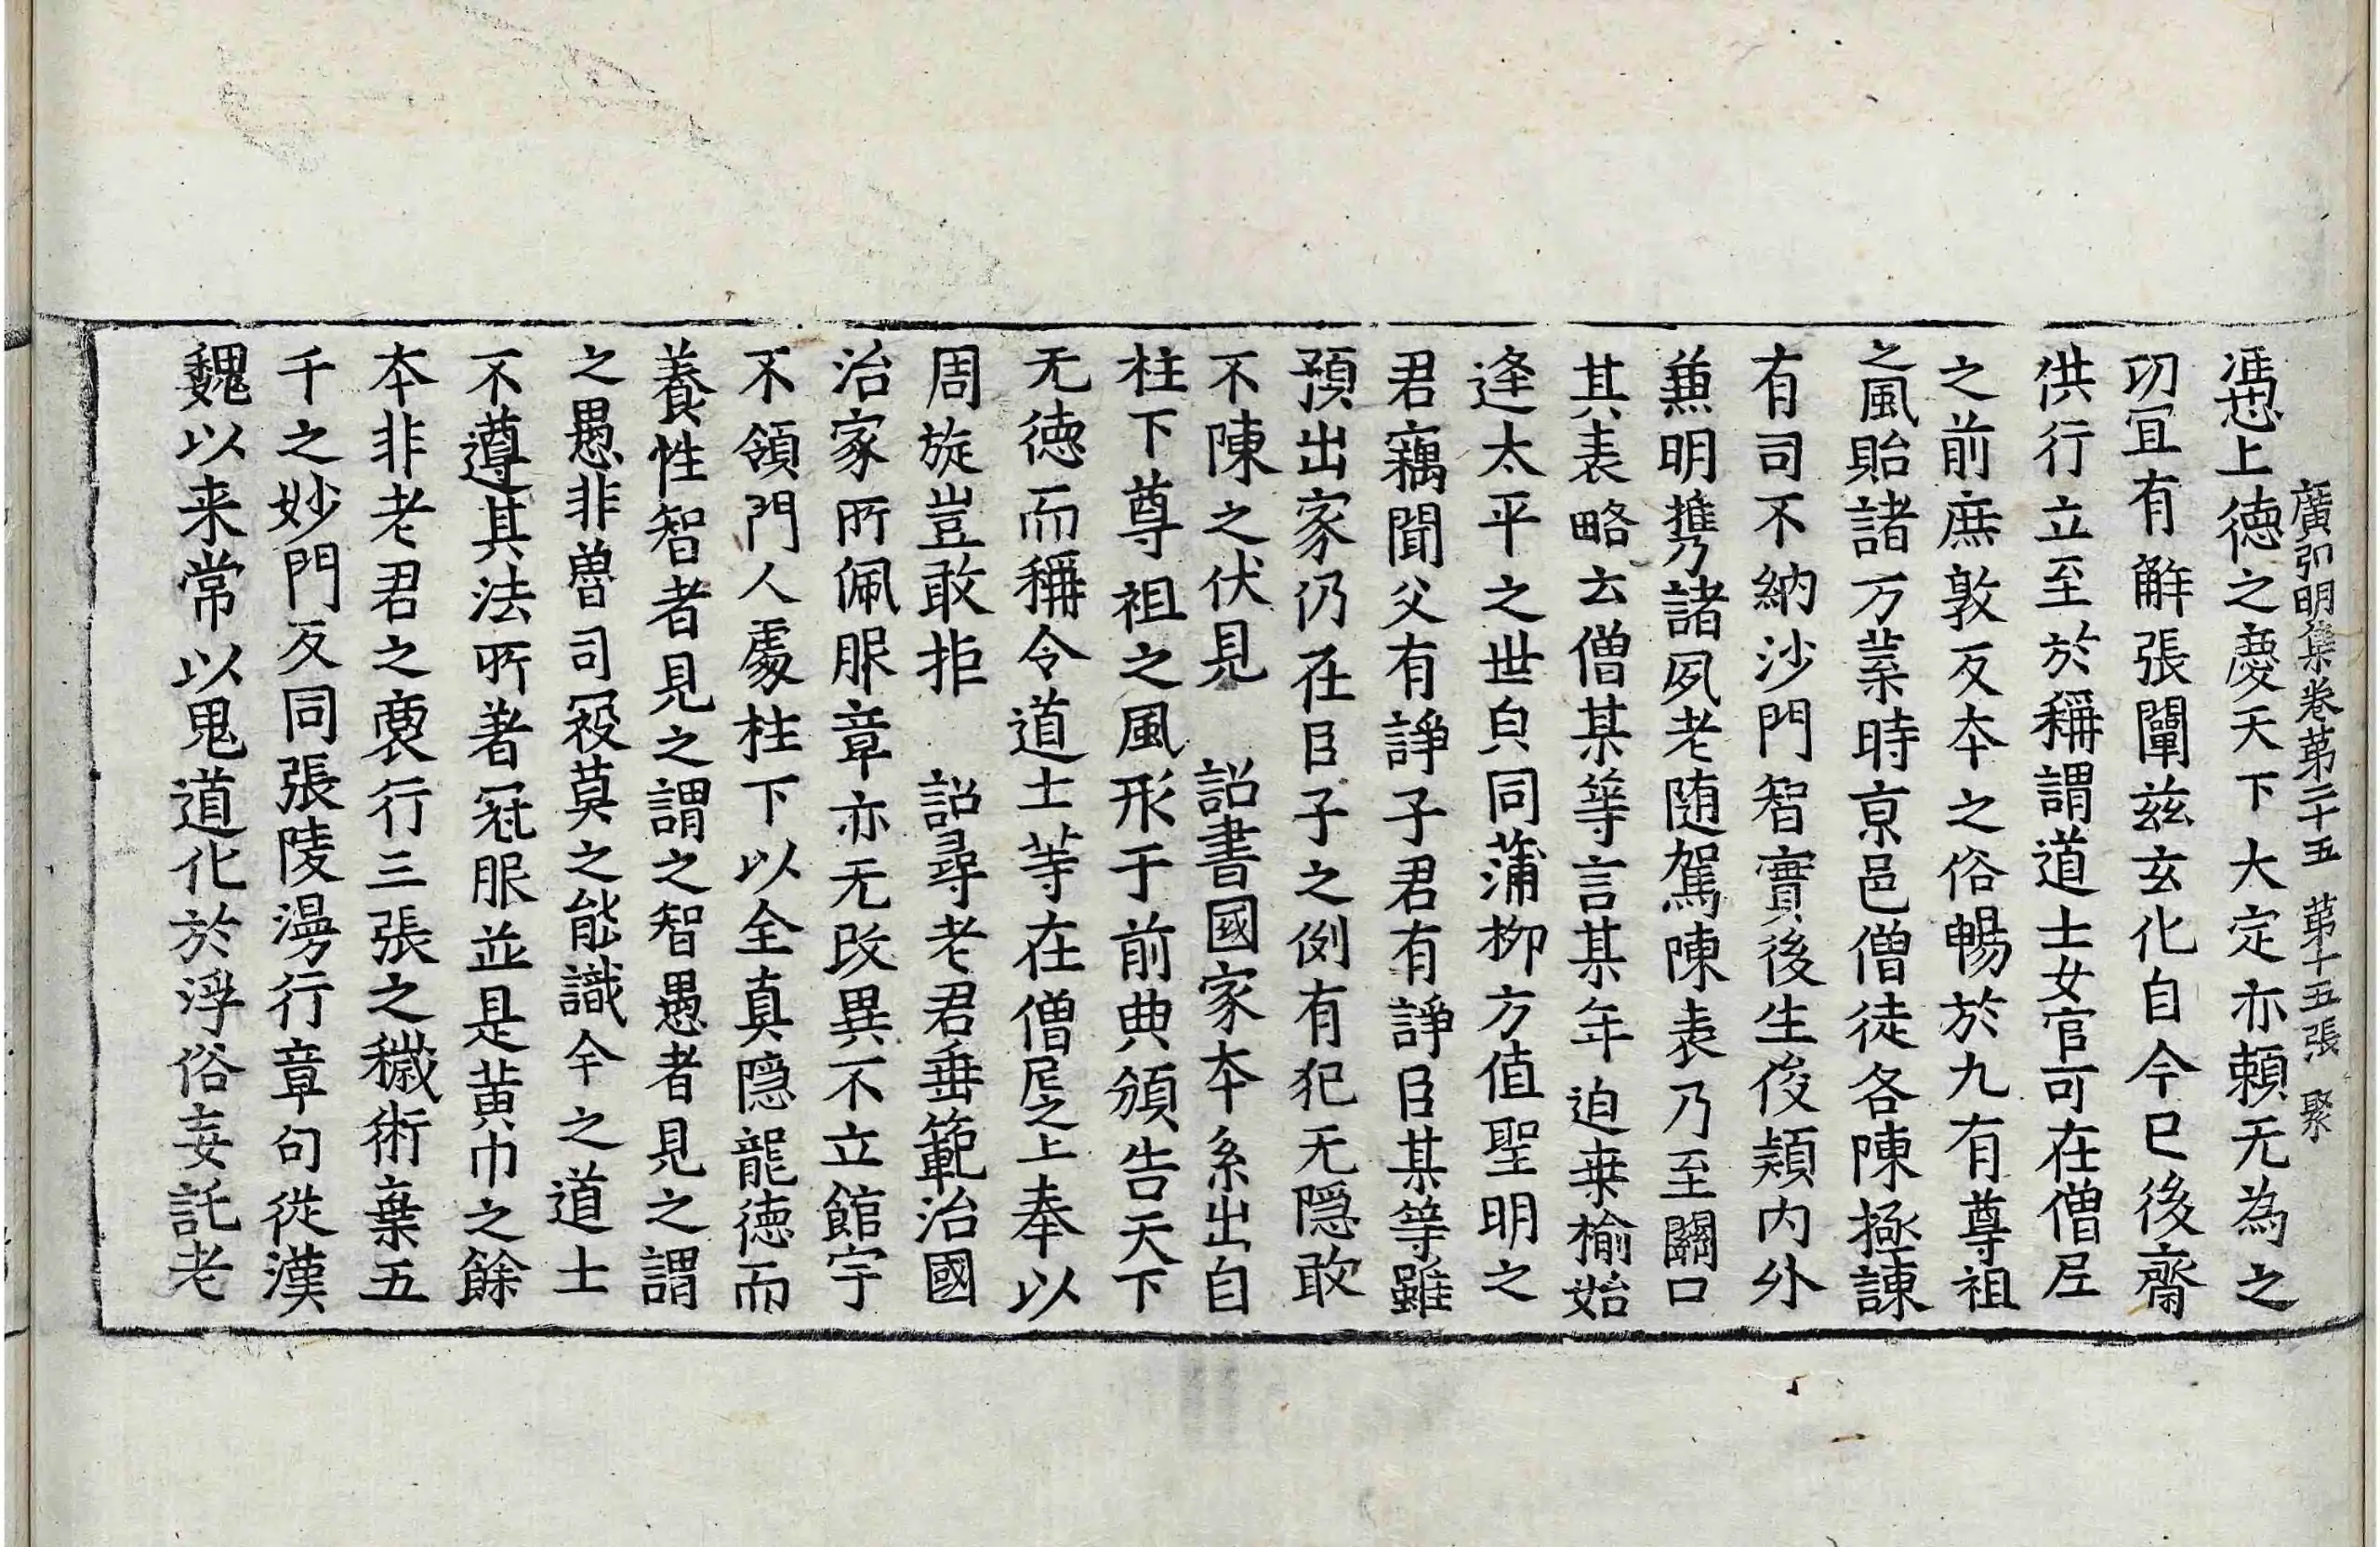 廣弘明集卷第二十五　第十五張　聚
憑上德之慶天下大定亦頼无為之
功宜有解張闡茲玄化自今已後齋
供行立至於稱謂道士女官可在僧尼
之前庶敦反本之俗暢於九有尊祖
之風貽諸万葉時京邑僧徒各陳極諫
有司不納沙門智實後生俊頴内外
兼明携諸夙老随駕陳表乃至關口
其表略云僧某等言某年迫桒榆始
逢太平之世㒵同蒲柳方值聖明之
君竊聞父有諍子君有諍臣某等雖
預出家仍在臣子之例有犯无隠敢
不陳之伏見　詔書國家本系出自
柱下尊祖之風形于前典頒告天下
无德而稱令道士等在僧尼之上奉以
周旋豈敢拒　詔尋老君垂範治國
治家所佩服章亦无改異不立館宇
不領門人處柱下以全真隠龍德而
養性智者見之謂之智愚者見之謂
之愚非魯司寇莫之能識今之道士
不遵其法所著冠服並是黄巾之餘
本非老君之裔行三張之穢術棄五
千之妙門反同張陵漫行章句從漢
魏以来常以鬼道化於浮俗妄託老